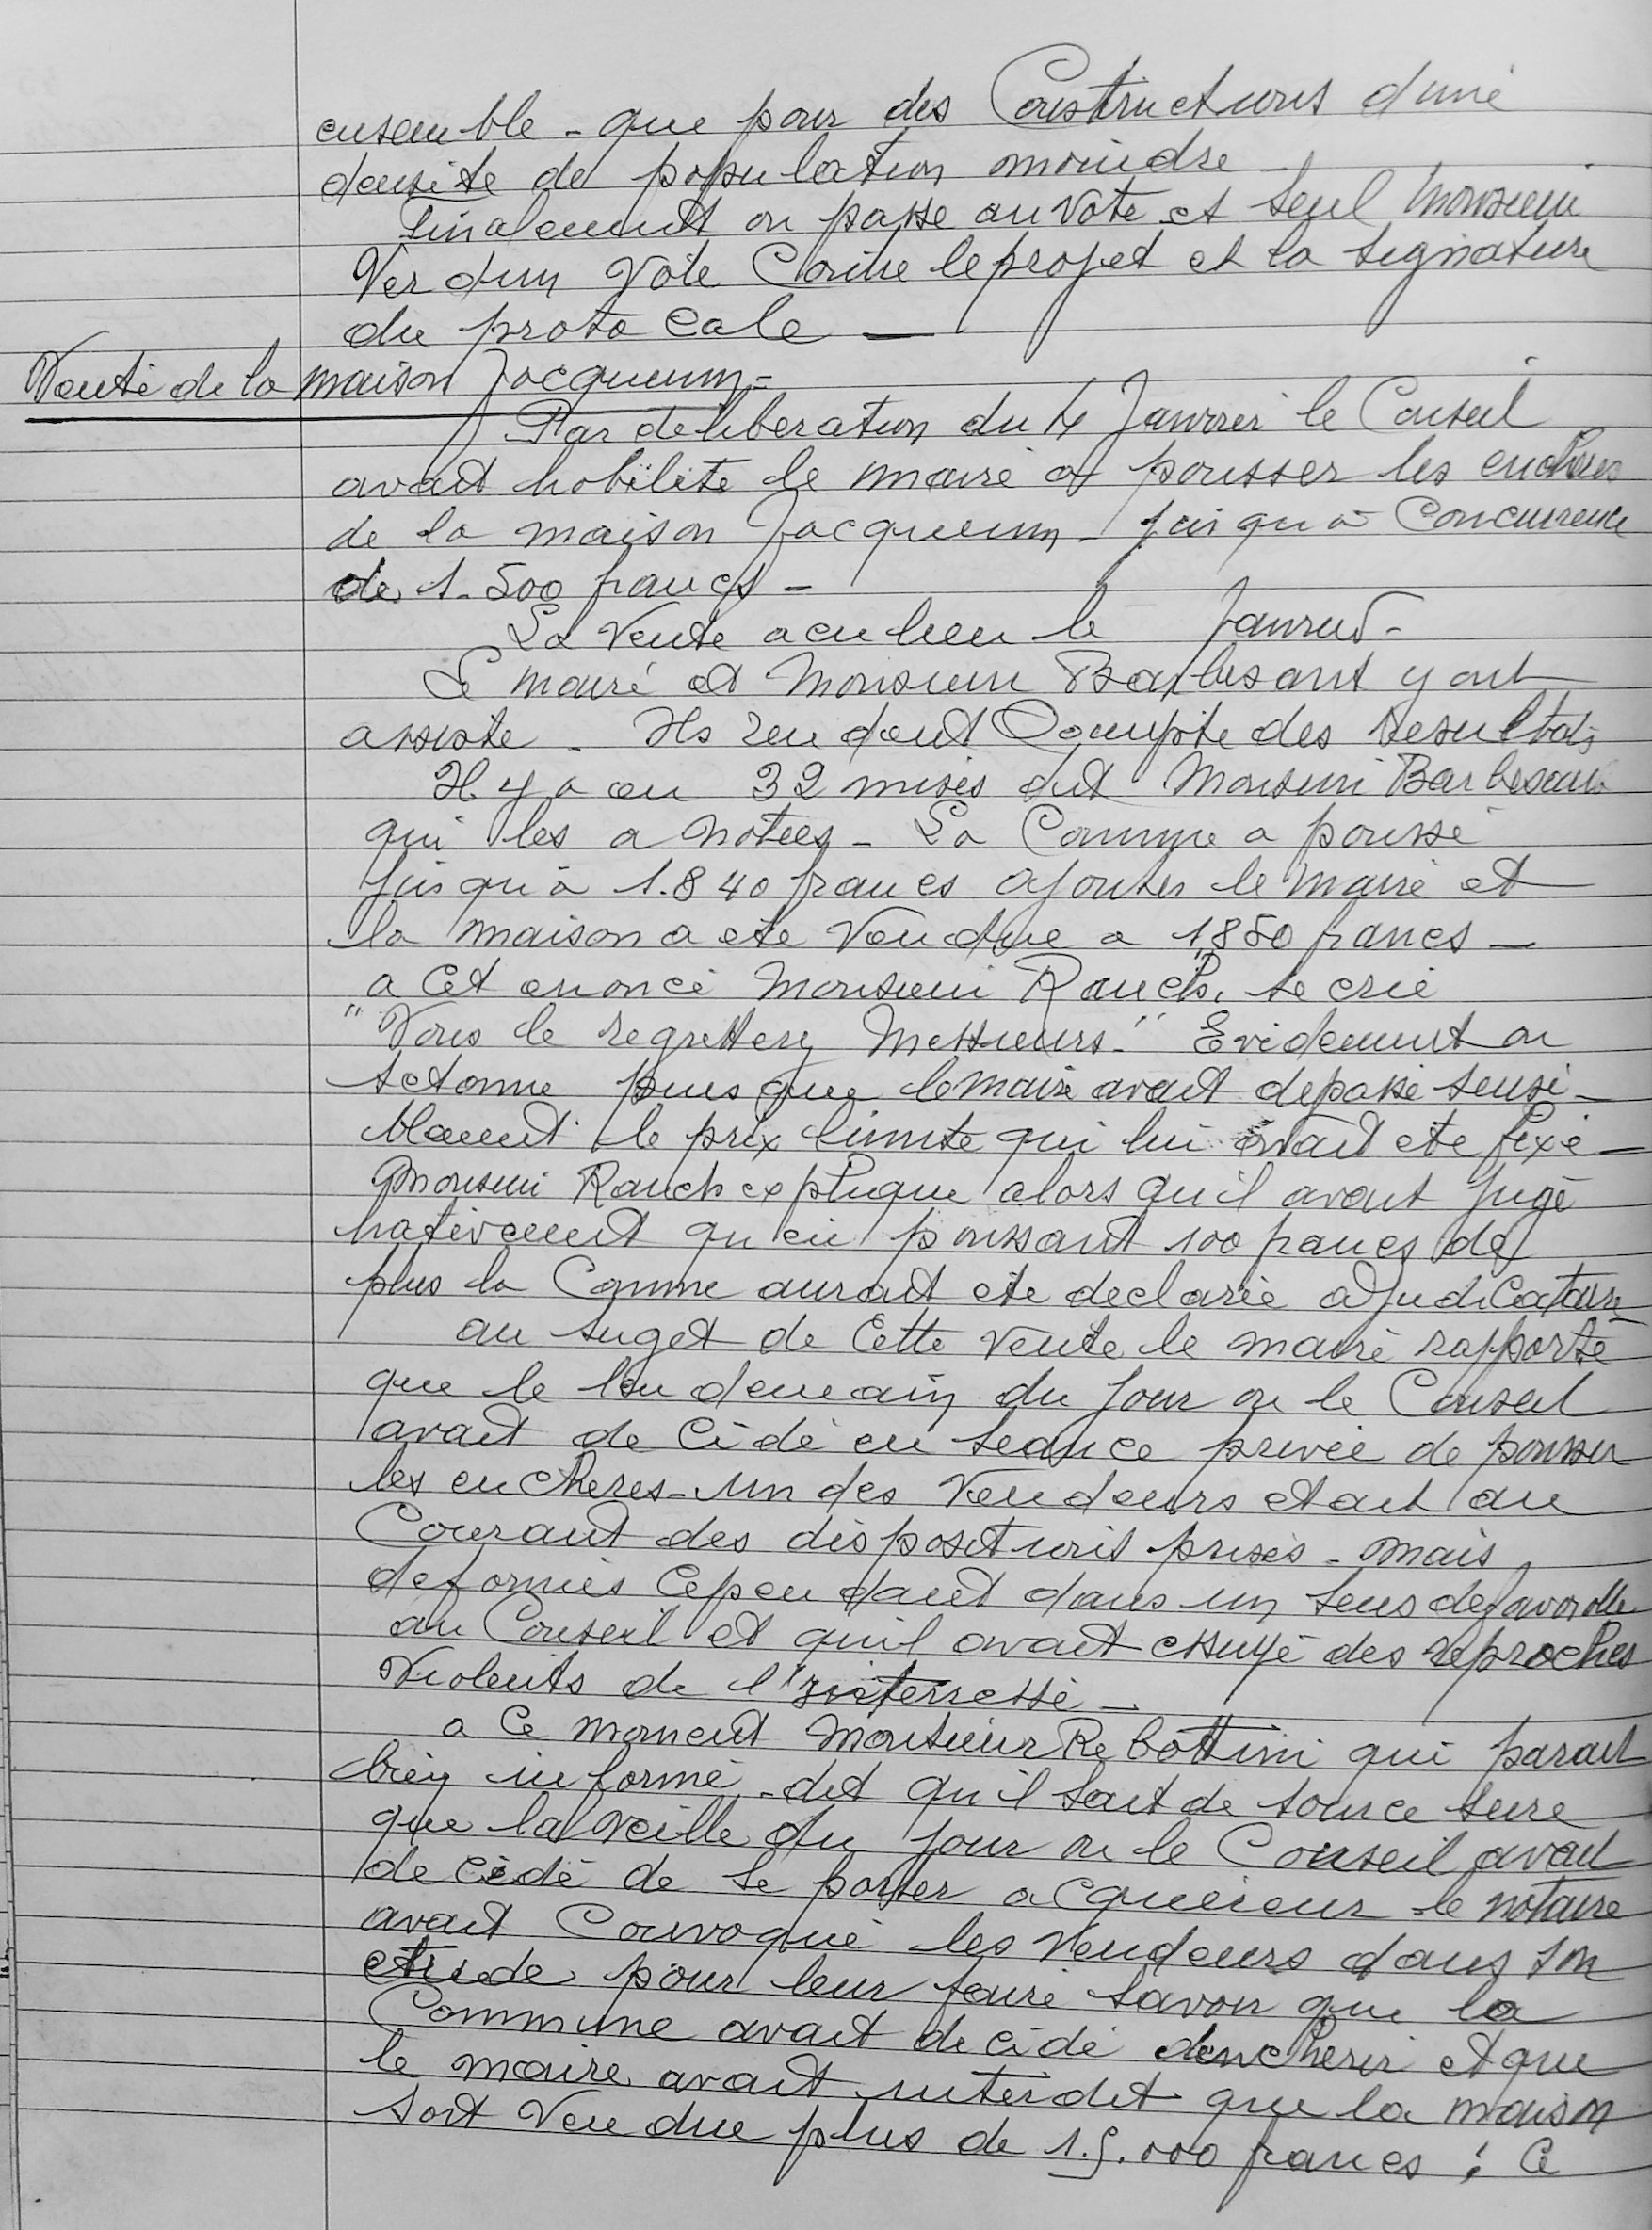 ensemble - que pour des Constructions d'une
densite de population moindre
Finalement on passe au vote et seul Monsieur
Verdun Vote Contre le projet et la signature
du protocale —
Vente de la maison Jacquemin -
Par deliberation du 14 Janvier le Conseil
avait habilité le maire a pousser les encheres
de la maison Jacquemin - jusqu'a Concurrence
de 1.500 francs -
La Vente a eu lieu le Janvier -
Le maire et Monsieur Barbesant y ont
assisté - Ils rendent Compte des resultats
Il y a eu 32 mises dit Monsieur Barbesant
qui les a notees - La Commune a poussé
jusqu'à 1.840 francs ajoutes le maire et
la maison a ete Vendue a 1,850 francs —
a Cet enoncé Monsieur Rauch, se crie
"Vous le regretterez Messieurs." Evidement on
setonne puisque le maire avait depassé sensi-
blement le prix limite qui lui avait ete fixé —
Monsieur Rauch explique alors qu'il avait jugé
hativement qu'en poussant 100 francs de
plus la Comme aurait ete declarée adjudicataire
au suget de Cette Vente le maire rapporte
que le lendemain du jour ou le Conseil
avait decidé en seance privée de pousser
les encheres - un des Vendeurs etait au
Courant des dispositions prises - mais
deformés Cependant dans un sens defavorable
au Conseil et qu'il avait essuyé des reproches
Violents de l'interressé —
a Ce moment Monsieur Rebottini qui parait
bien informé - dit qu'il sait de source sure
que la veille du jour ou le Conseil avait
decidé de se porter acquereur le notaire
avait Convoqué les Vendeurs dans son
etude pour leur faire savoir que la
Commune avait decidé dencherir et que
le maire avait interdit que la maison
soit Vendue plus de 1.5.000 francs ; Ce